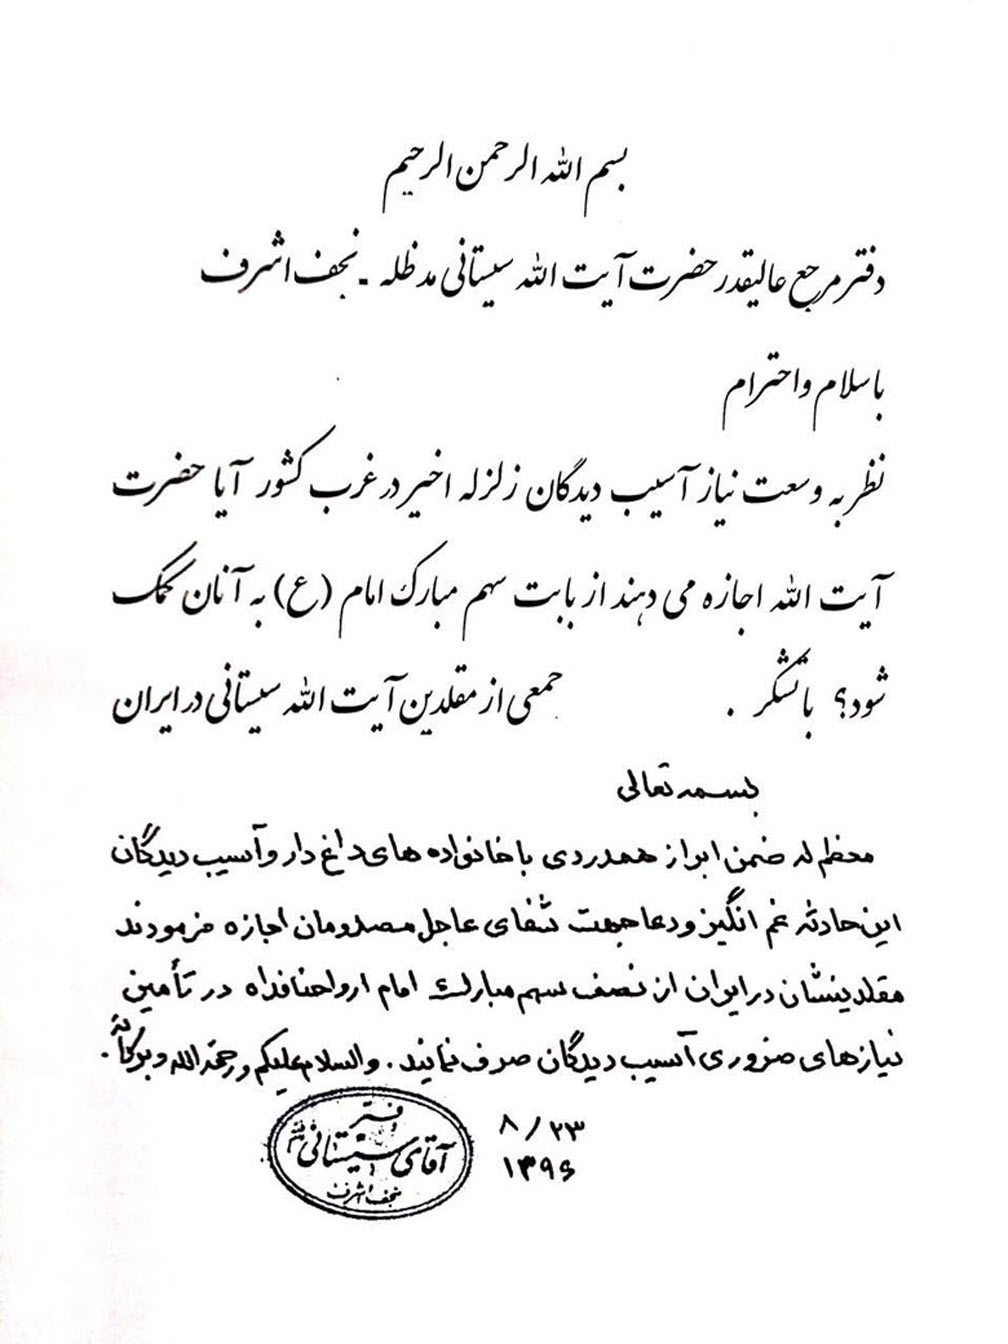 بسم الله الرحمن الرحیم
دفتر مرجع عالیقدر حضرت آیت الله سیستانی مدظله - نجف اشرف
باسلام واحترام
نظر به وسعت نیاز آسیب دیدگان زلزله اخیر در غرب کشور آیا حضرت
آیت الله اجازه می دهند از بابت سهم مبارک امام (ع) به آنان کمک
شود؟ باتشکر . جمعی از مقلدین آیت الله سیستانی در ایران
بسمه تعالی
معظم له ضمن ابراز همدردی با خانواده های داغ دار و آسیب دیدگان
این حادثه غم انگیز و دعا جهت شفای عاجل مصدومان اجازه فرمودند
مقلدینشان در ایران از نصف سهم مبارک امام ارواحنا فداه در تأمین
نیازهای ضروری آسیب دیدگان صرف نمایند. والسلام علیکم ورحمة الله وبرکاته.
۸/۲۳
۱۳۹۶
دفتر
آقای سیستانی
نجف اشرف